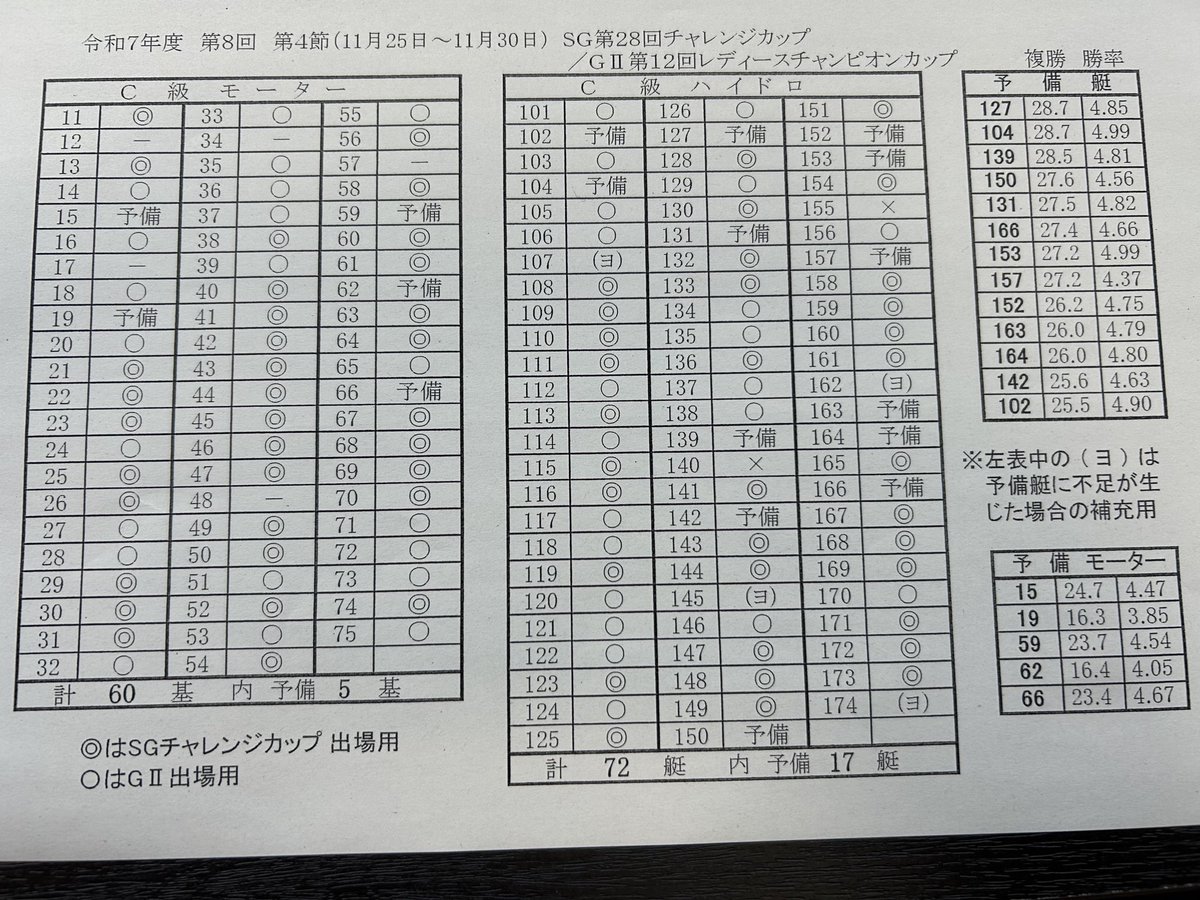 令和7年度 第8回 第4節(11月25日～11月30日) SG第28回チャレンジカップ
/GⅡ第12回レディースチャンピオンカップ
C 級 モーター
11 ◎ 33 ○ 55 ○
12 － 34 － 56 ◎
13 ◎ 35 ○ 57 －
14 ○ 36 ○ 58 ◎
15 予備 37 ○ 59 予備
16 ○ 38 ◎ 60 ◎
17 － 39 ○ 61 ◎
18 ○ 40 ◎ 62 予備
19 予備 41 ◎ 63 ◎
20 ○ 42 ◎ 64 ◎
21 ◎ 43 ◎ 65 ○
22 ◎ 44 ◎ 66 予備
23 ◎ 45 ◎ 67 ◎
24 ○ 46 ◎ 68 ◎
25 ◎ 47 ◎ 69 ◎
26 ◎ 48 － 70 ◎
27 ○ 49 ◎ 71 ○
28 ○ 50 ◎ 72 ○
29 ◎ 51 ○ 73 ○
30 ◎ 52 ◎ 74 ◎
31 ◎ 53 ○ 75 ○
32 ○ 54 ◎
計 60 基 内 予備 5 基
◎はSGチャレンジカップ 出場用
○はGⅡ出場用
C 級 ハイドロ
101 ○ 126 ○ 151 ◎
102 予備 127 予備 152 予備
103 ○ 128 ◎ 153 予備
104 予備 129 ○ 154 ◎
105 ○ 130 ◎ 155 ×
106 ○ 131 予備 156 ○
107 (ヨ) 132 ◎ 157 予備
108 ◎ 133 ◎ 158 ◎
109 ◎ 134 ◎ 159 ◎
110 ◎ 135 ○ 160 ◎
111 ◎ 136 ◎ 161 ◎
112 ○ 137 ○ 162 (ヨ)
113 ◎ 138 ○ 163 予備
114 ○ 139 予備 164 予備
115 ◎ 140 × 165 ◎
116 ◎ 141 ◎ 166 予備
117 ○ 142 予備 167 ◎
118 ○ 143 ◎ 168 ◎
119 ◎ 144 ◎ 169 ◎
120 ○ 145 (ヨ) 170 ○
121 ○ 146 ○ 171 ◎
122 ○ 147 ◎ 172 ◎
123 ◎ 148 ◎ 173 ◎
124 ○ 149 ◎ 174 (ヨ)
125 ◎ 150 予備
計 72 艇 内 予備 17 艇
複勝 勝率
予 備 艇
127 28.7 4.85
104 28.7 4.99
139 28.5 4.81
150 27.6 4.56
131 27.5 4.82
166 27.4 4.66
153 27.2 4.99
157 27.2 4.37
152 26.2 4.75
163 26.0 4.79
164 26.0 4.80
142 25.6 4.63
102 25.5 4.90
※左表中の(ヨ)は
予備艇に不足が生
じた場合の補充用
予 備 モーター
15 24.7 4.47
19 16.3 3.85
59 23.7 4.54
62 16.4 4.05
66 23.4 4.67